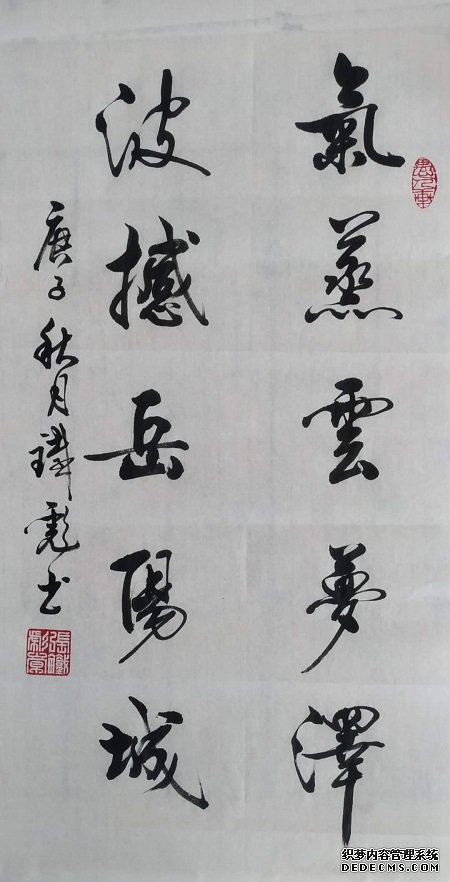 氣蒸雲夢澤
波撼岳陽城
庚子秋月 彪书
织梦内容管理系统
DEDECMS.COM